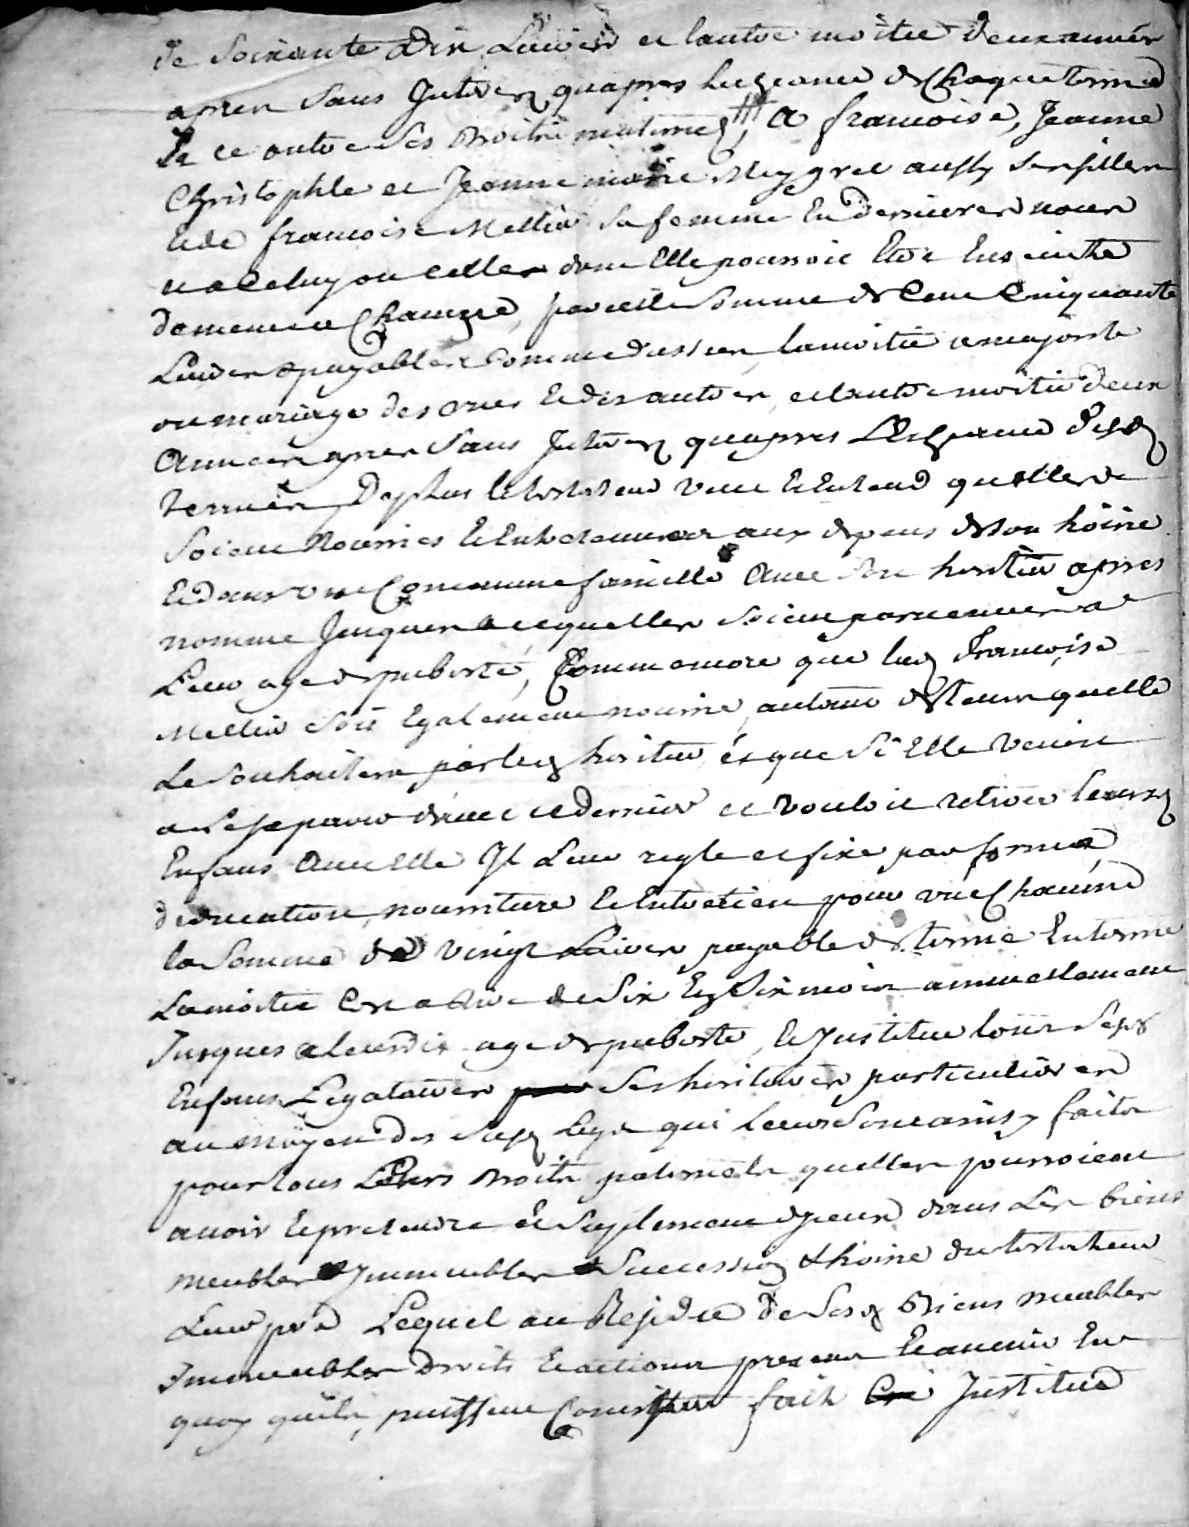 de soixante dix Livres et lautre moitie deux années
apres sans Interes quapres lecheance de chaque terme
& ce outre ses droits maternels, A francoise, Jeanne
Christophle et Jeanne marie Meygret aussy ses filles
& de francoise Mellier sa femme En dernieres noces
et a Celuy ou celles dont Elle pourroit Etre Enceinte
demeure a Chacune, pareille somme de Cent Cinquante
Livres payables comme dessus, lamoitie a majorite
ou mariage des unes & des autres, et lautre moitie deux
Années apres sans Interes quapres L'Echeance desd
termes, De plus le testateur veut & Entend quelles
soient Nourries & Entretenues aux depens de son hoirie
& dans une Commune famille Avec son heritier apres
nomme Jusques a ce quelles soient parvenues a
Leur age de puberté, Comme encore que lad Francoise
Mellier soit Egalement nourrie, autant de tems quelle
Le souhaitera par led heritier, et que si Elle venoit
a se separer davec ce dernier et vouloit retirer leursd
Enfans Avec elle Il Leur regle et fixe par forme
deducation, nourriture & Entretien pour une Chacune
la somme de vingt Livres payable de terme En terme
Lamoitie de six En six mois annuellement
Jusques aleurdit age de puberte, & Institue tous sesd
Enfans Legataires ses heritieres particulieres
au moyen des susd Legs qui leur sont ainsy faits
pour tous Leurs droits paternels quelles pourroient
avoir & pretendre & suplement diceux dans Les biens
meubles Immeubles succession & hoirie du testateur
Leur pere Lequel au Residu de sesd Biens meubles
Immeubles droits & actions presens & avenir En
quoy quils puissent Consister fait Institue